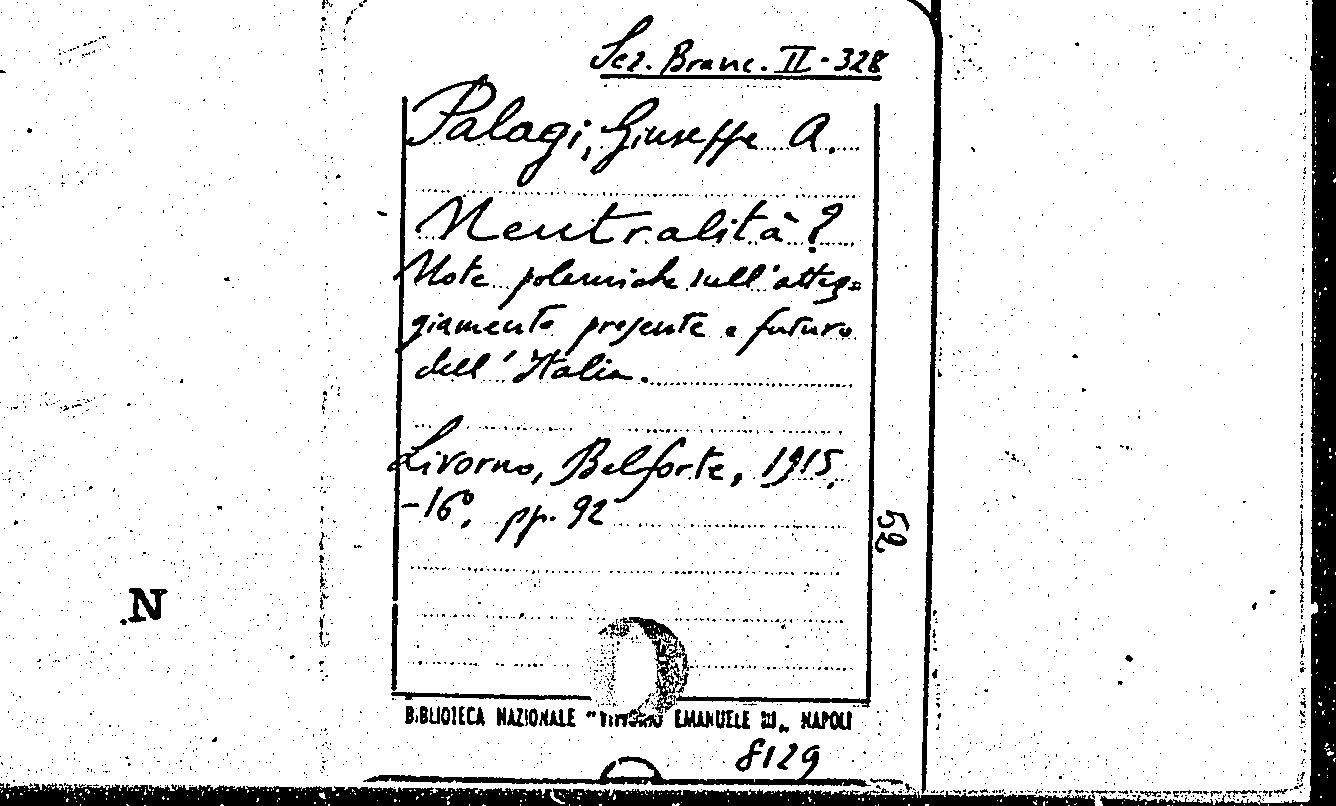 Sez. Branc. II-328
Palagi, Giuseppe A.
Neutralità?
Note polemiche sull'atteg=
giamento presente e futuro
dell'Italia.
Livorno, Belforte, 1915,
-16º, pp. 92
52
N
BIBLIOTECA NAZIONALE "VITTORIO EMANUELE III„ NAPOLI
8129